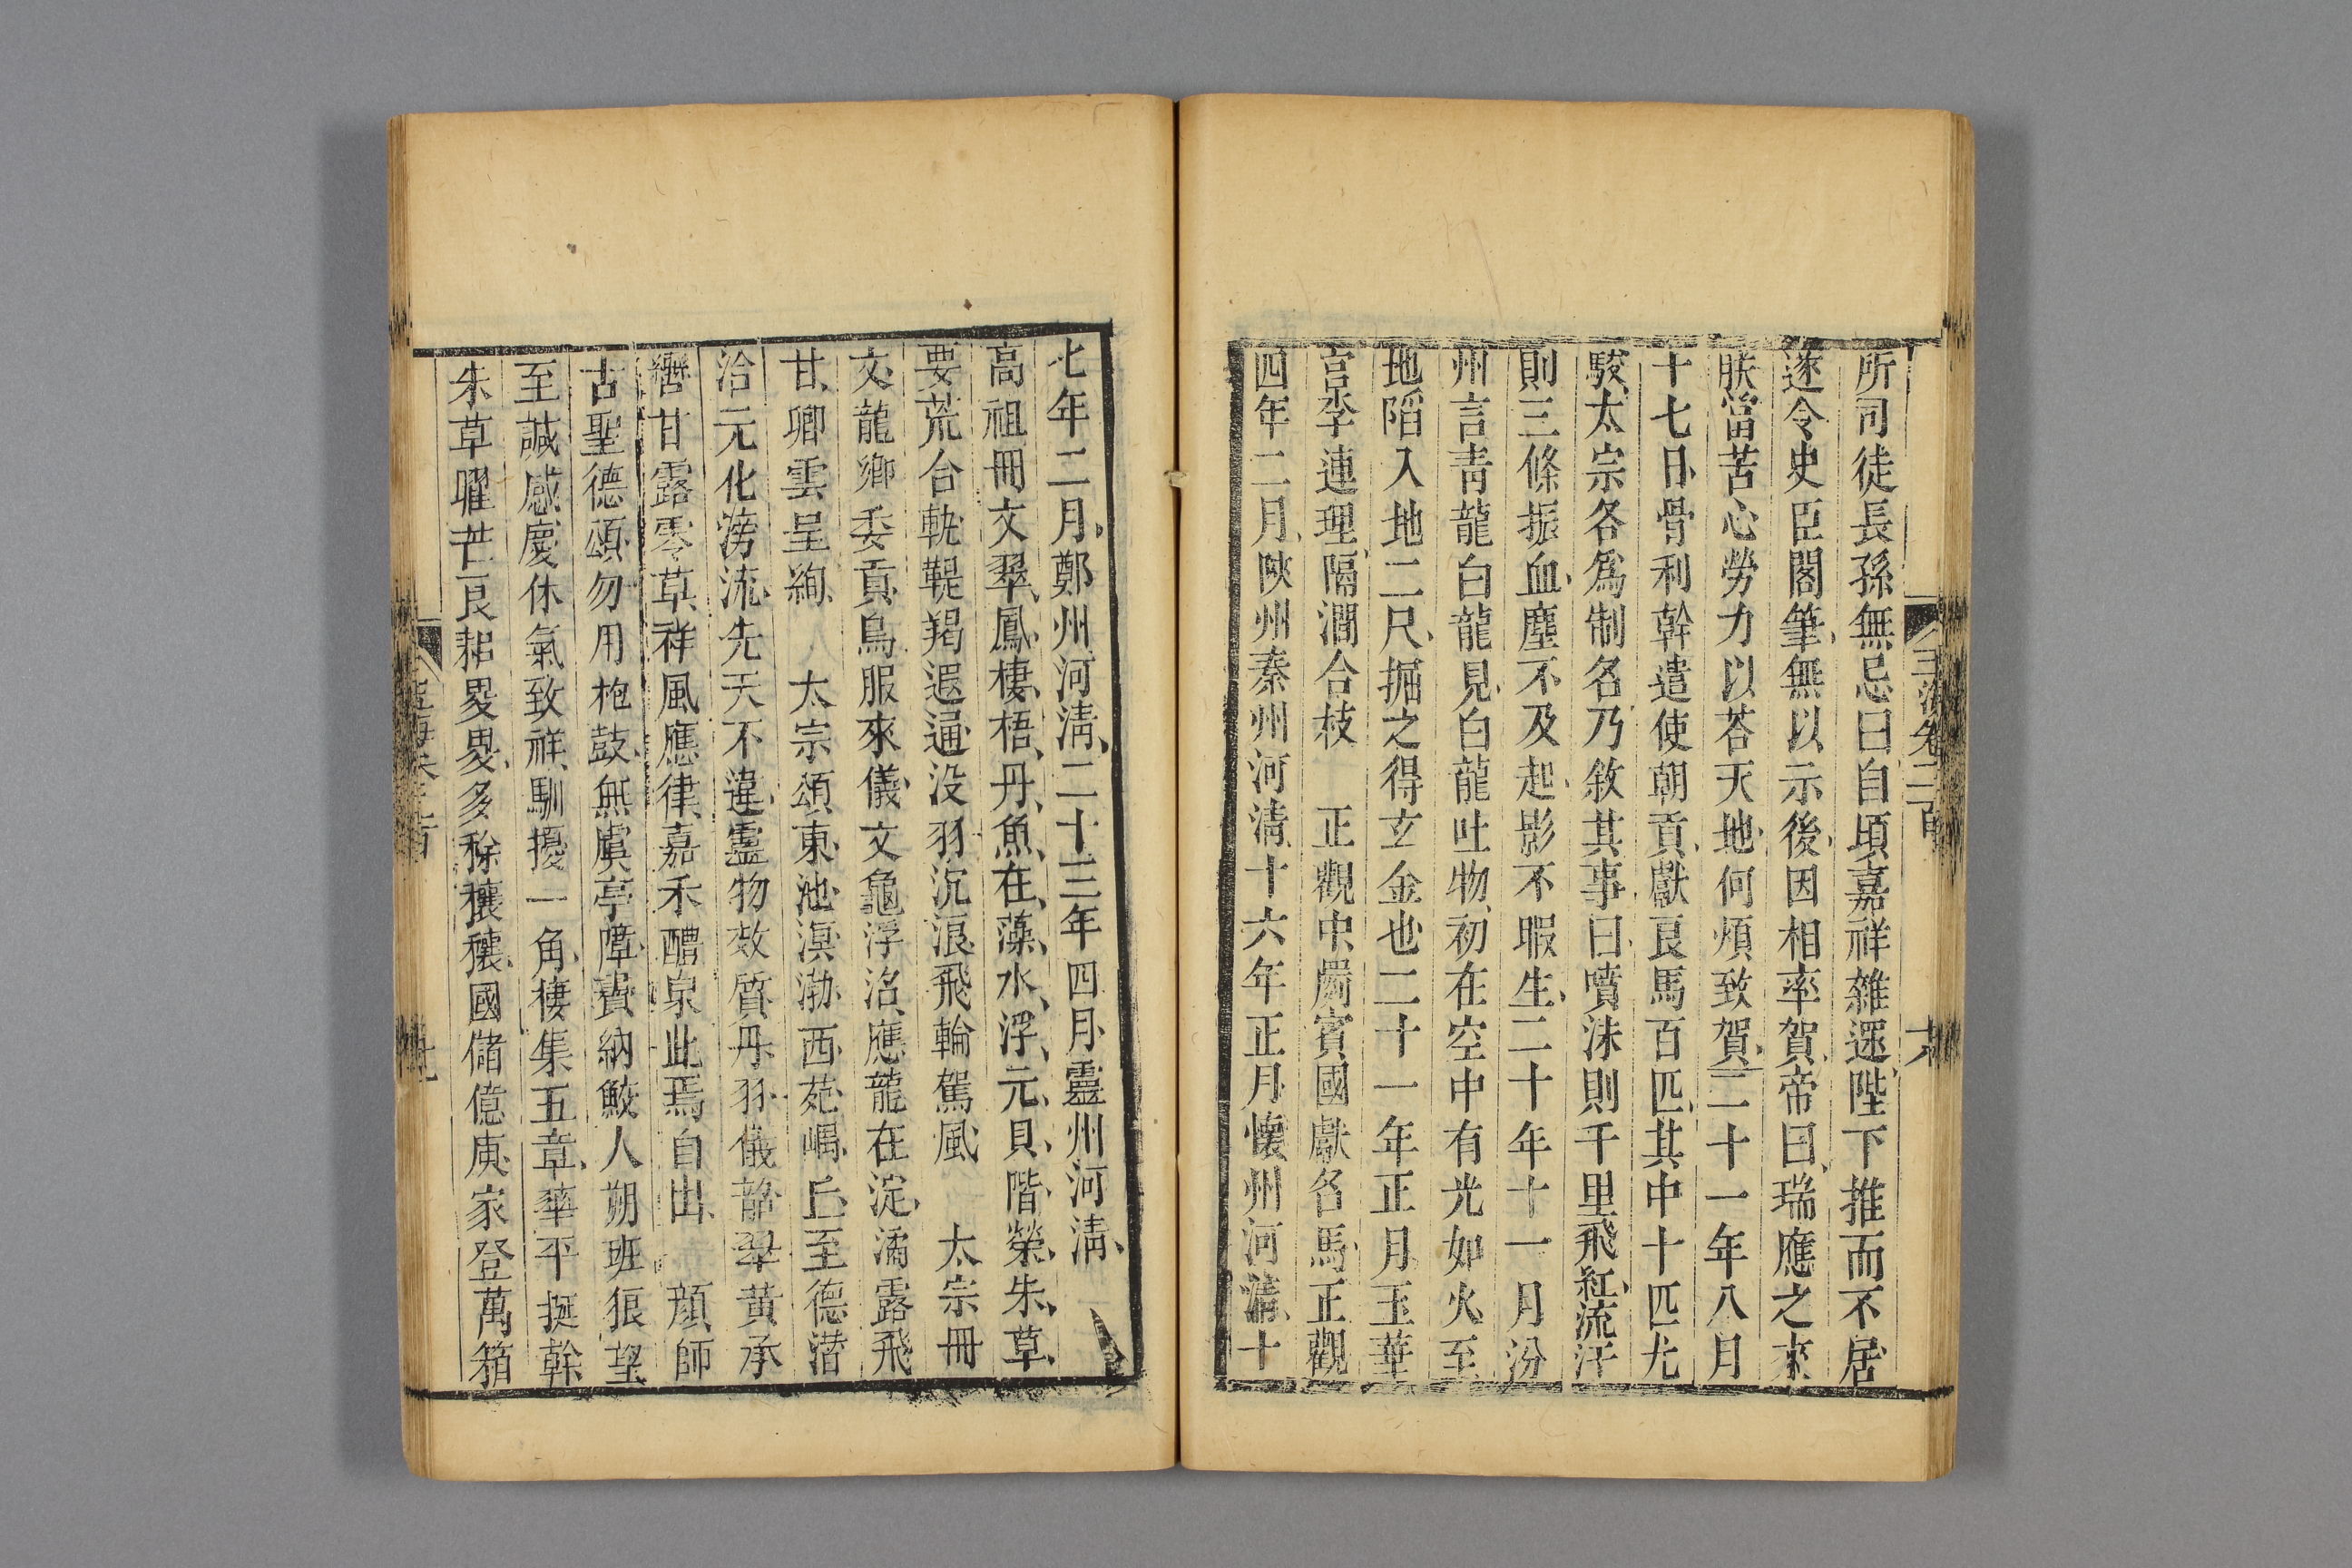 所司徒長孫無忌曰自頃嘉祥雜遝陛下推而不居
遂令史臣閣筆無以示後因相率賀帝曰瑞應之來
朕當苦心勞力以荅天地何煩致賀二十一年八月
十七日骨利幹遣使朝貢獻良馬百匹其中十匹尤
駿太宗各爲制名乃敘其事曰噴沫則千里飛紅流汗
則三條振血塵不及起影不暇生二十年十一月汾
州言靑龍白龍見白龍吐物初在空中有光如火至
地䧟入地二尺掘之得玄金也二十一年正月玉華
宮李連理隔澗合枝　正觀中罽賓國獻名馬正觀
四年二月陝州秦州河淸十六年正月懷州河淸十
七年二月鄭州河淸二十三年四月靈州河淸
高祖冊文翠鳳棲梧丹魚在藻水浮元貝階榮朱草
要荒合軌鞮羯遐逼没羽沉浪飛輪駕風　太宗冊
文龍鄉委貢鳥服來儀文龜浮洛應龍在淀潏露飛
甘卿雲呈絢　太宗頌東池溟渤西苑嵎丘至德潜
洽元化滂流先天不違靈物效質丹羽儀韶翠黄承
轡甘露零草祥風應律嘉禾醴泉此焉自出　顔師
古聖德頌勿用枹鼓無虞亭障賨納鮫人朔班狼望
至諴感慶休氣致祥馴擾一角棲集五章華平挺幹
朱草曜芒良耜畟畟多稌穰穰國儲億庾家登萬箱